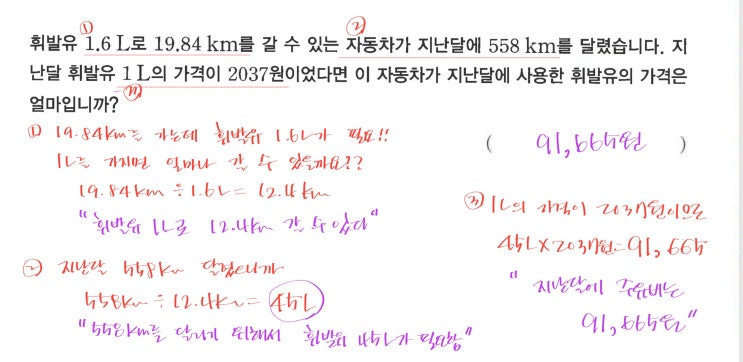 휘발유 1.6 L로 19.84 km를 갈 수 있는 자동차가 지난달에 558 km를 달렸습니다. 지
난달 휘발유 1 L의 가격이 2037원이었다면 이 자동차가 지난달에 사용한 휘발유의 가격은
얼마입니까?
( 91,665원 )
① 19.84km를 가는데 휘발유 1.6L가 필요!!
1L를 가지면 얼마나 갈 수 있을까요??
19.84km ÷ 1.6L = 12.4km
"휘발유 1L로 12.4km 갈 수 있다"
② 지난달 558km 달렸으니까
558km ÷ 12.4km = 45L
"558km를 달리기 위해서 휘발유 45L가 필요함"
③ 1L의 가격이 2037원이므로
45L×2037원=91,665
"지난달에 주유비는
91,665원"